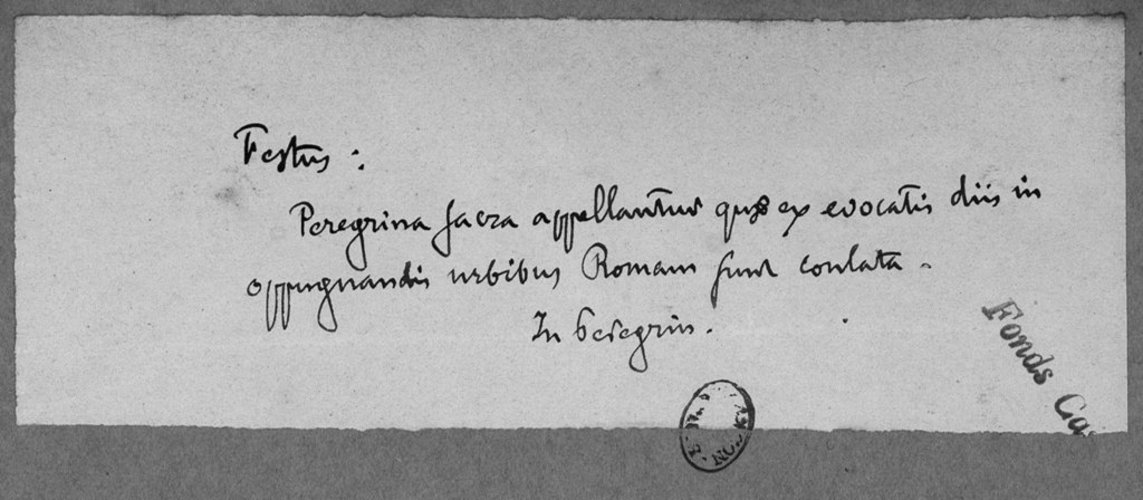 Festus :
Peregrina sacra appellantur quae ex evocatis diis in
oppugnandis urbibus Romam sunt conlata.
In Peregrin.
Fonds